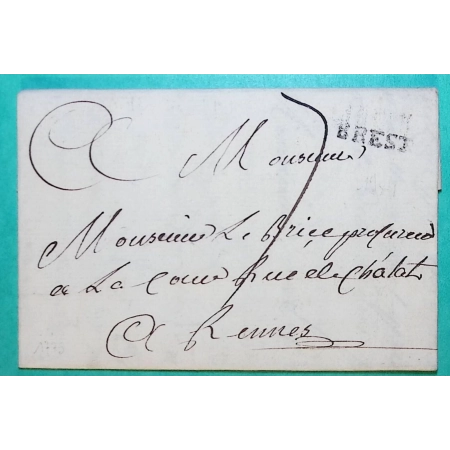 A Monsieur
BREST
7
Monsieur Le Brice procureur
a La Cour Rue de Châlat
A Rennes